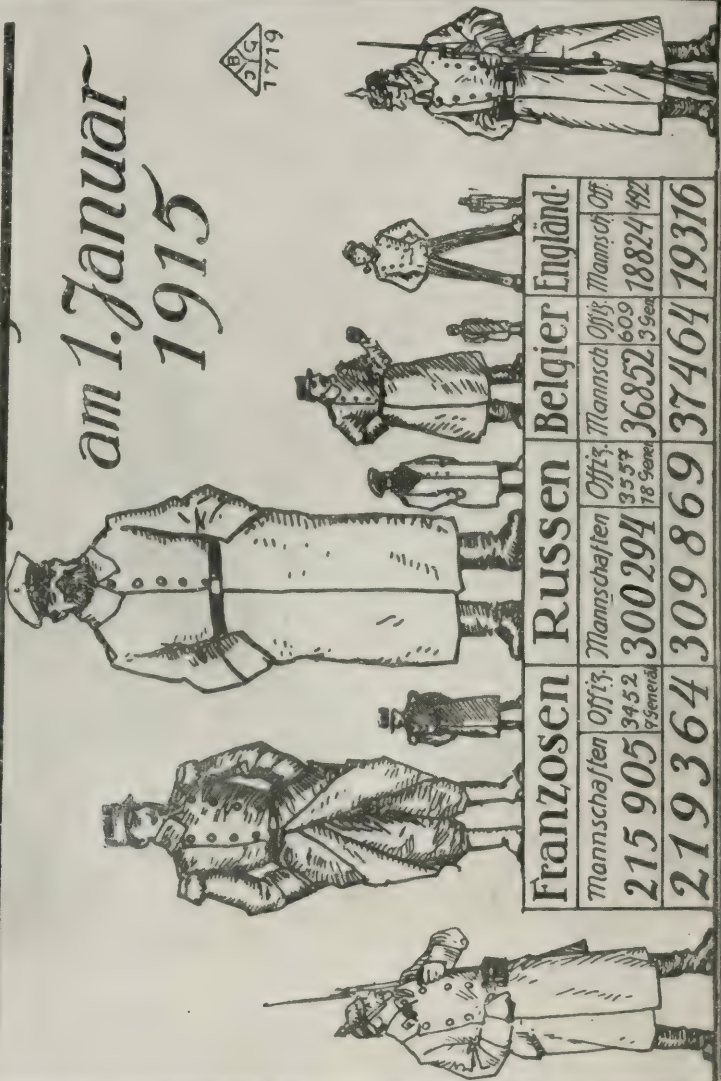 am 1. Januar
1915
B G
J
1719
Franzosen Russen Belgier Engländ.
Mannschaften Offiz. Mannschaften Offiz. Mannsch Offiz. Mannsch Off.
215 905 3452 300294 3557 36852 609 18824 492
7 General 18 Gener 3 Gen
219364 309869 37464 19316